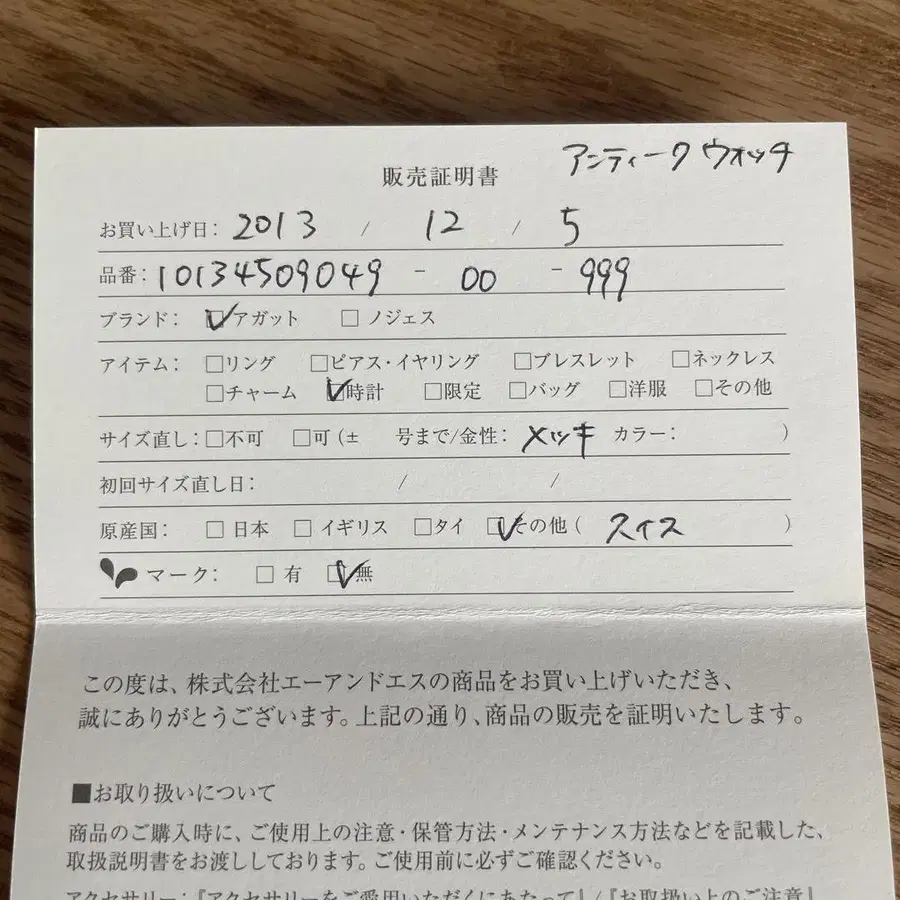 アンティークウォッチ
販売証明書
お買い上げ日: 2013 / 12 / 5
品番: 10134509049 - 00 - 999
ブランド: ☑アガット □ ノジェス
アイテム: □リング □ピアス・イヤリング □ブレスレット □ネックレス
□チャーム ☑時計 □限定 □バッグ □洋服 □その他
サイズ直し: □不可 □可 (± 号まで/金性: メッキ カラー: )
初回サイズ直し日: / /
原産国: □ 日本 □ イギリス □タイ ☑その他 ( スイス )
マーク: □ 有 ☑無
この度は、株式会社エーアンドエスの商品をお買い上げいただき、
誠にありがとうございます。上記の通り、商品の販売を証明いたします。
■お取り扱いについて
商品のご購入時に、ご使用上の注意・保管方法・メンテナンス方法などを記載した、
取扱説明書をお渡ししております。ご使用前に必ずご確認ください。
アクセサリー:『アクセサリーをご愛用いただくにあたって』/『お取扱い上のご注意』